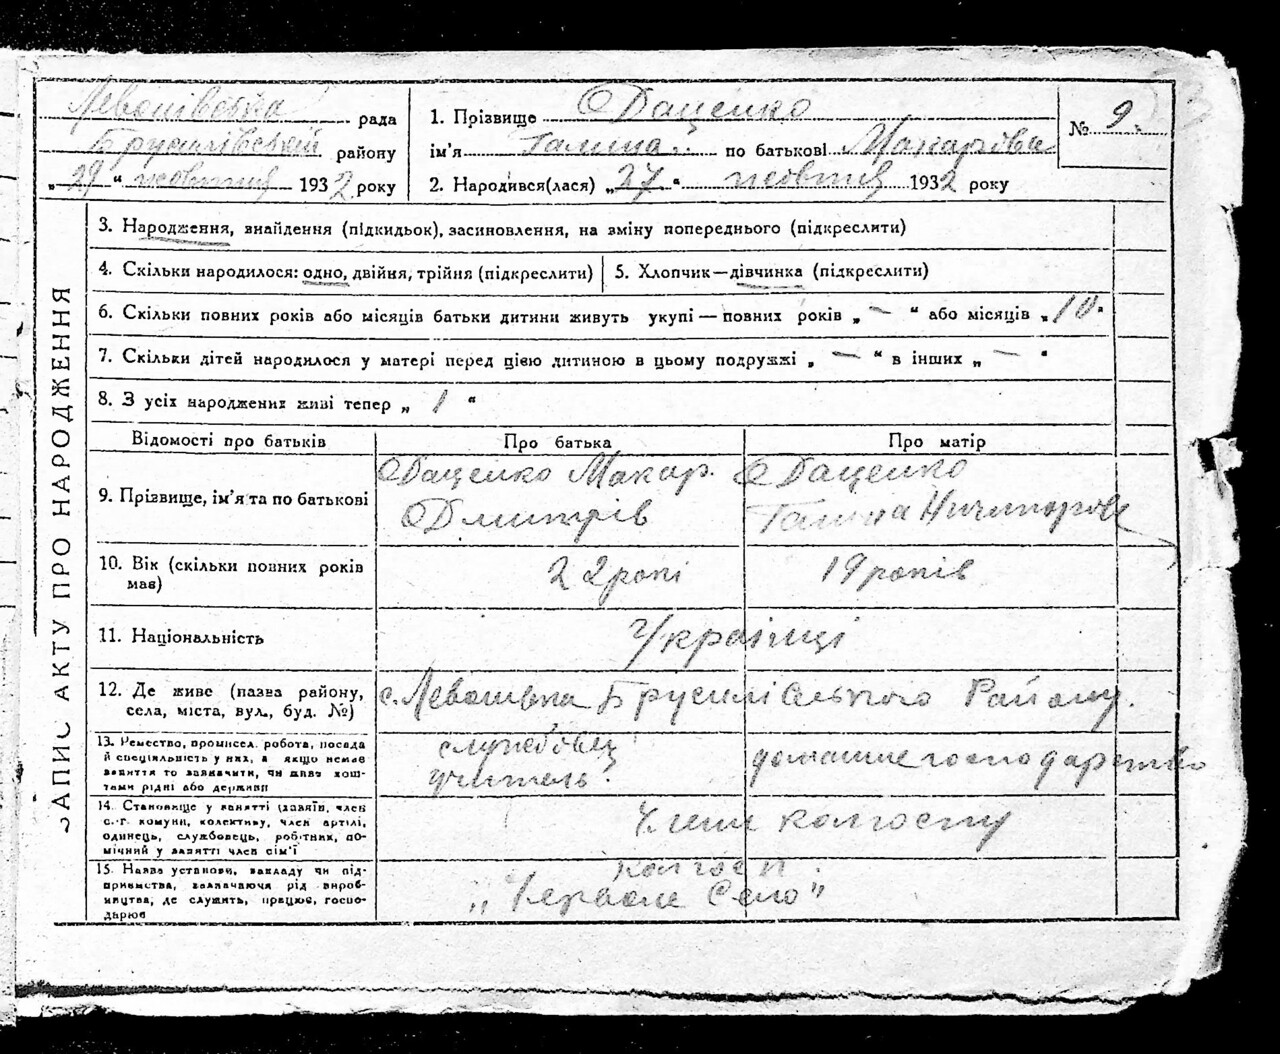 Левонівська рада
Брусилівський району
„29“ жовтня 1932 року
1. Прізвище Даценко
ім'я Галина по батькові Макарівна
2. Народився(лася) „27“ жовтня 1932 року
№ 9.
ЗАПИС АКТУ ПРО НАРОДЖЕННЯ
3. Народження, знайдення (підкидьок), засиновлення, на зміну попереднього (підкреслити)
4. Скільки народилося: одно, двійня, трійня (підкреслити)
5. Хлопчик—дівчинка (підкреслити)
6. Скільки повних років або місяців батьки дитини живуть укупі — повних років „ — “ або місяців „10“
7. Скільки дітей народилося у матері перед цією дитиною в цьому подружжі „ — “ в інших „ — “
8. З усіх народжених живі тепер „ 1 “
Відомості про батьків
Про батька
Про матір
9. Прізвище, ім'я та по батькові
Даценко Макар
Дмитрів
Даценко
Галина
10. Вік (скільки повних років
мав)
22 роки
19 років
11. Національність
Українці
12. Де живе (назва району,
села, міста, вул., буд. №)
с. Брусилівського Району.
13. Ремество, промисел, робота, посада
й спеціяльність у них, а якщо немає
заняття то зазначити, чи живе кош-
тами рідні або держави
службовець
учитель
домашнє господарство
14. Становище у занятті (хазяїн, член
с.-г. комуни, колективу, член артілі,
одинець, службовець, робітник, по-
мічний у занятті член сім'ї
Члени колгоспу
15. Назва установи, закладу чи під-
приємства, зазначаючи рід вироб-
ництва, де служить, працює, госпо-
дарює
колгосп
„Червоне Село“